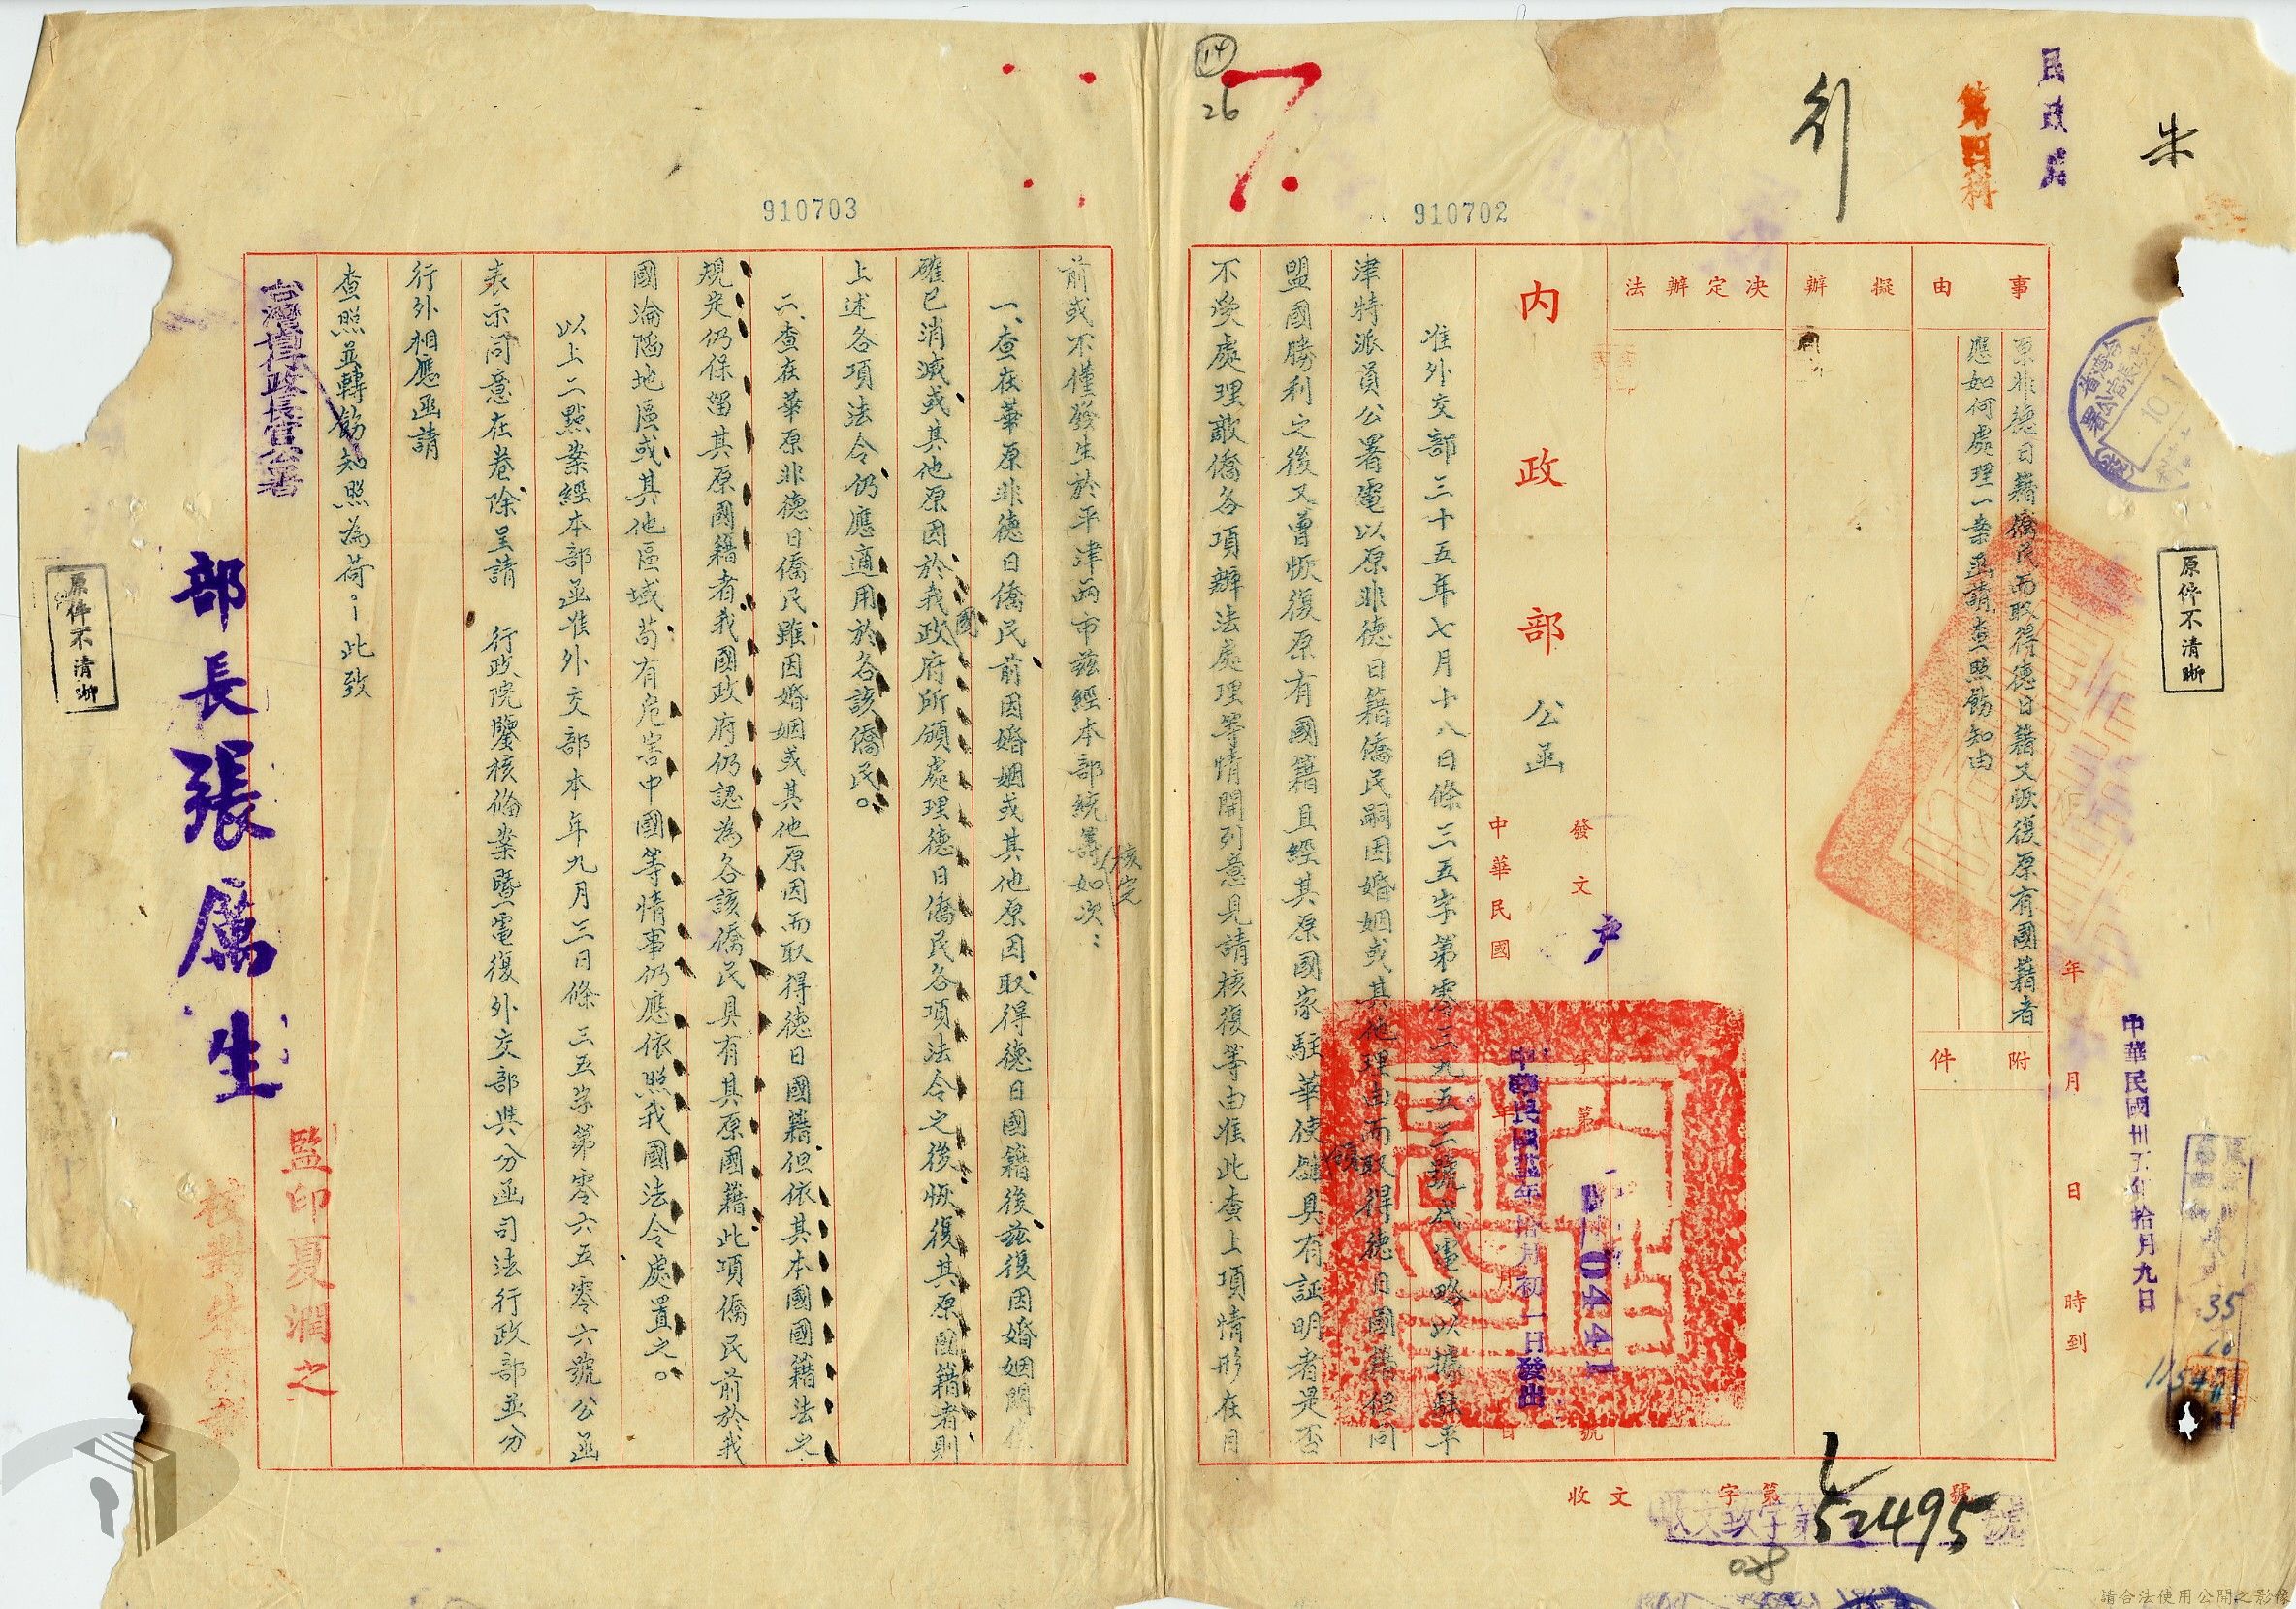 朱
民政處
第四科
行
14
26
7.
910702
910703
原件不清晰
中華民國卅五年拾月九日
年 月 日 時到
事由
原非德日籍僑民而取得德日籍又恢復原有國籍者
應如何處理一案函請查照飭知由
附件
擬辦
決定辦法
發文 字第 號
戶
0441
中華民國 年 月 日
中華民國卅五年拾月初一日發出
內政部公函
准外交部三十五年七月十八日條三五字第零三九五三號代電略以據駐平
津特派員公署電以原非德日籍僑民嗣因婚姻或其他理由而取得德日國籍但同
盟國勝利之後又曾恢復原有國籍且經其原國家駐華使領館具有証明者是否
不受處理敵僑各項辦法處理等情開列意見請核復等由准此查上項情形在目
前或不僅發生於平津兩市茲經本部統籌核定如次：
一、查在華原非德日僑民前因婚姻或其他原因取得德日國籍後茲復因婚姻關係
確已消滅或其他原因於我國政府所頒處理德日僑民各項法令之後恢復其原國籍者則
上述各項法令仍應適用於各該僑民。
二、查在華原非德日僑民雖因婚姻或其他原因而取得德日國籍但依其本國國籍法之
規定仍保留其原國籍者我國政府仍認為各該僑民具有其原國籍此項僑民前於我
國淪陷地區或其他區域苟有危害中國等情事仍應依照我國法令處置之。
以上二點業經本部函准外交部本年九月三日條三五字第零六五零六號公函
表示同意在卷除呈請 行政院鑒核備案暨電復外交部與分函司法行政部並分
行外相應函請
查照並轉飭知照為荷。此致
台灣省行政長官公署
部長張厲生
監印夏潤之
校對朱
原件不清晰
收文 字第 號
收文致字第 號
52495
35
10
115
請合法使用公開之影像